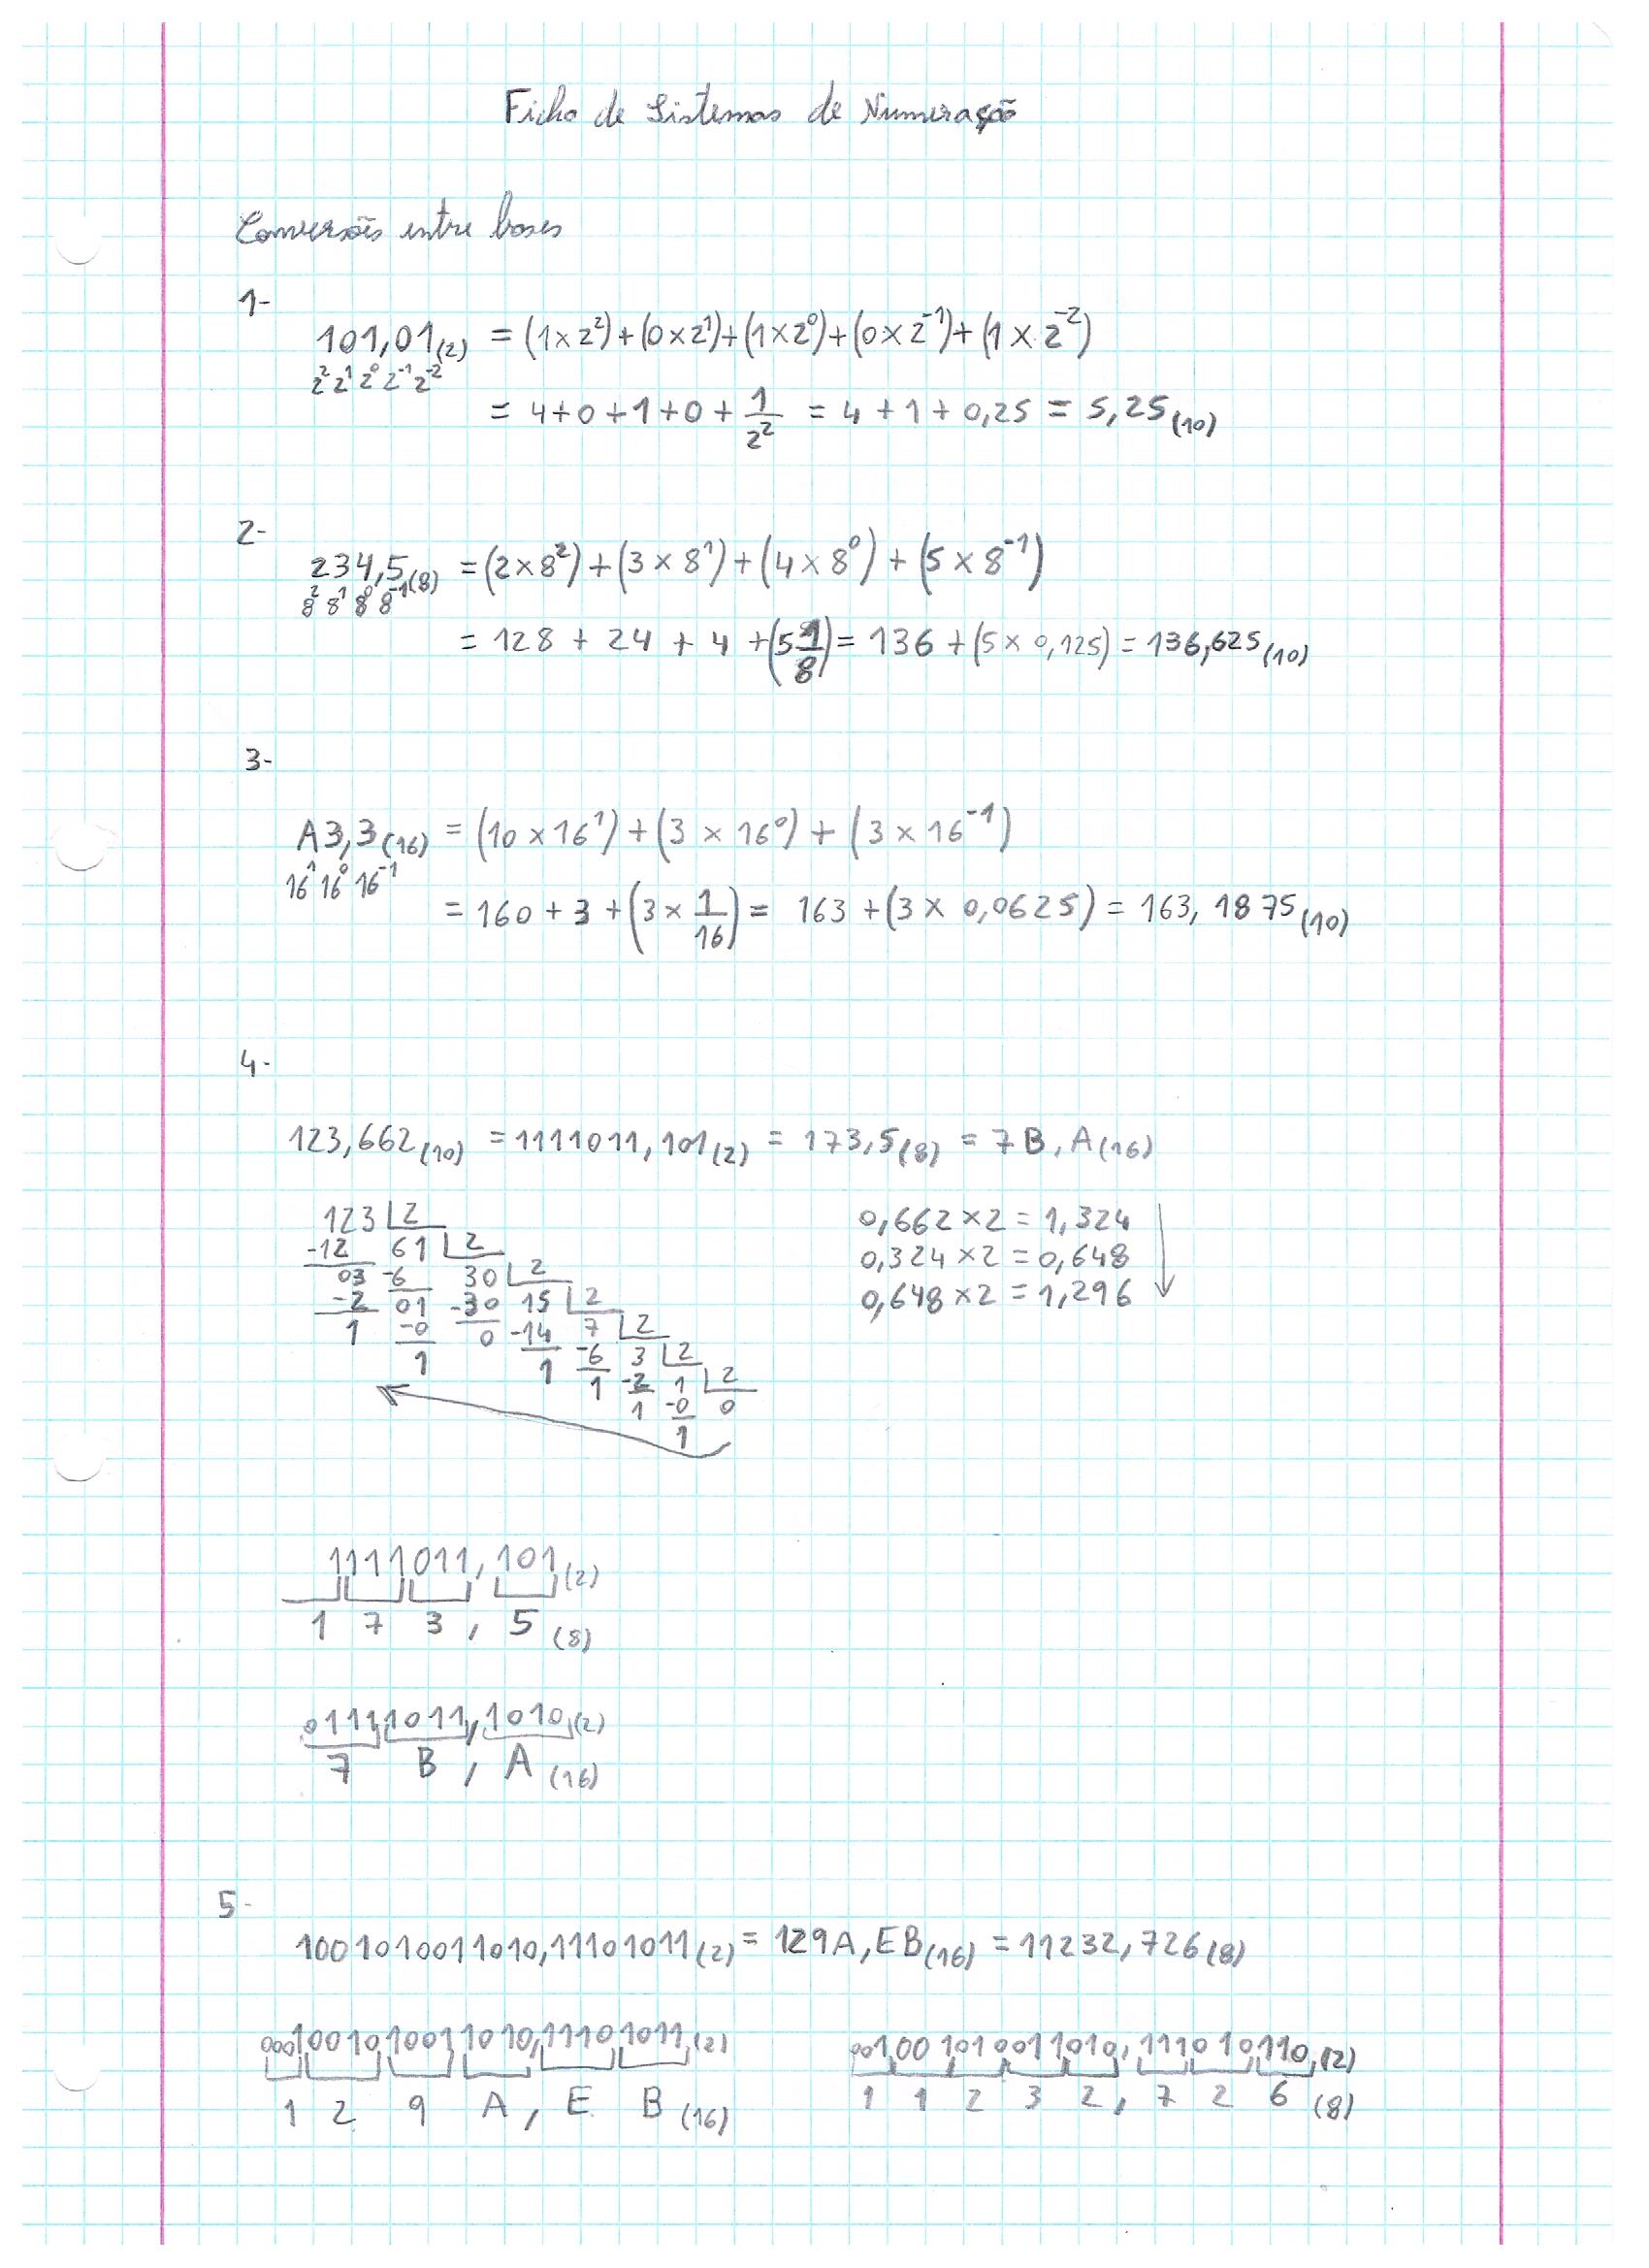 Ficha de Sistemas de Numeração
Conversões entre bases
1-
101,01(2) = (1×2²)+(0×2¹)+(1×2⁰)+(0×2⁻¹)+(1×2⁻²)
2² 2¹ 2⁰ 2⁻¹ 2⁻²
= 4+0+1+0+1/2² = 4+1+0,25 = 5,25(10)
2-
234,5(8) = (2×8²)+(3×8¹)+(4×8⁰)+(5×8⁻¹)
8² 8¹ 8⁰ 8⁻¹
= 128 + 24 + 4 +(5 1/8) = 136 + (5×0,125) = 136,625(10)
3-
A3,3(16) = (10×16¹)+(3×16⁰)+(3×16⁻¹)
16¹ 16⁰ 16⁻¹
= 160+3+(3×1/16) = 163+(3×0,0625) = 163,1875(10)
4-
123,662(10) = 1111011,101(2) = 173,5(8) = 7B,A(16)
123 2
-12 61 2
03 -6 30 2
-2 01 -30 15 2
1 -0 0 -14 7 2
1 1 -6 3 2
1 -2 1 2
1 -0 0
1
0,662×2 = 1,324
0,324×2 = 0,648
0,648×2 = 1,296
1111011,101(2)
1 7 3, 5(8)
01111011,1010(2)
7 B, A(16)
5-
1001010011010,11101011(2) = 129A,EB(16) = 11232,726(8)
0001001010011010,11101011(2)
1 2 9 A, E B(16)
001001010011010,111010110(2)
1 1 2 3 2, 7 2 6(8)